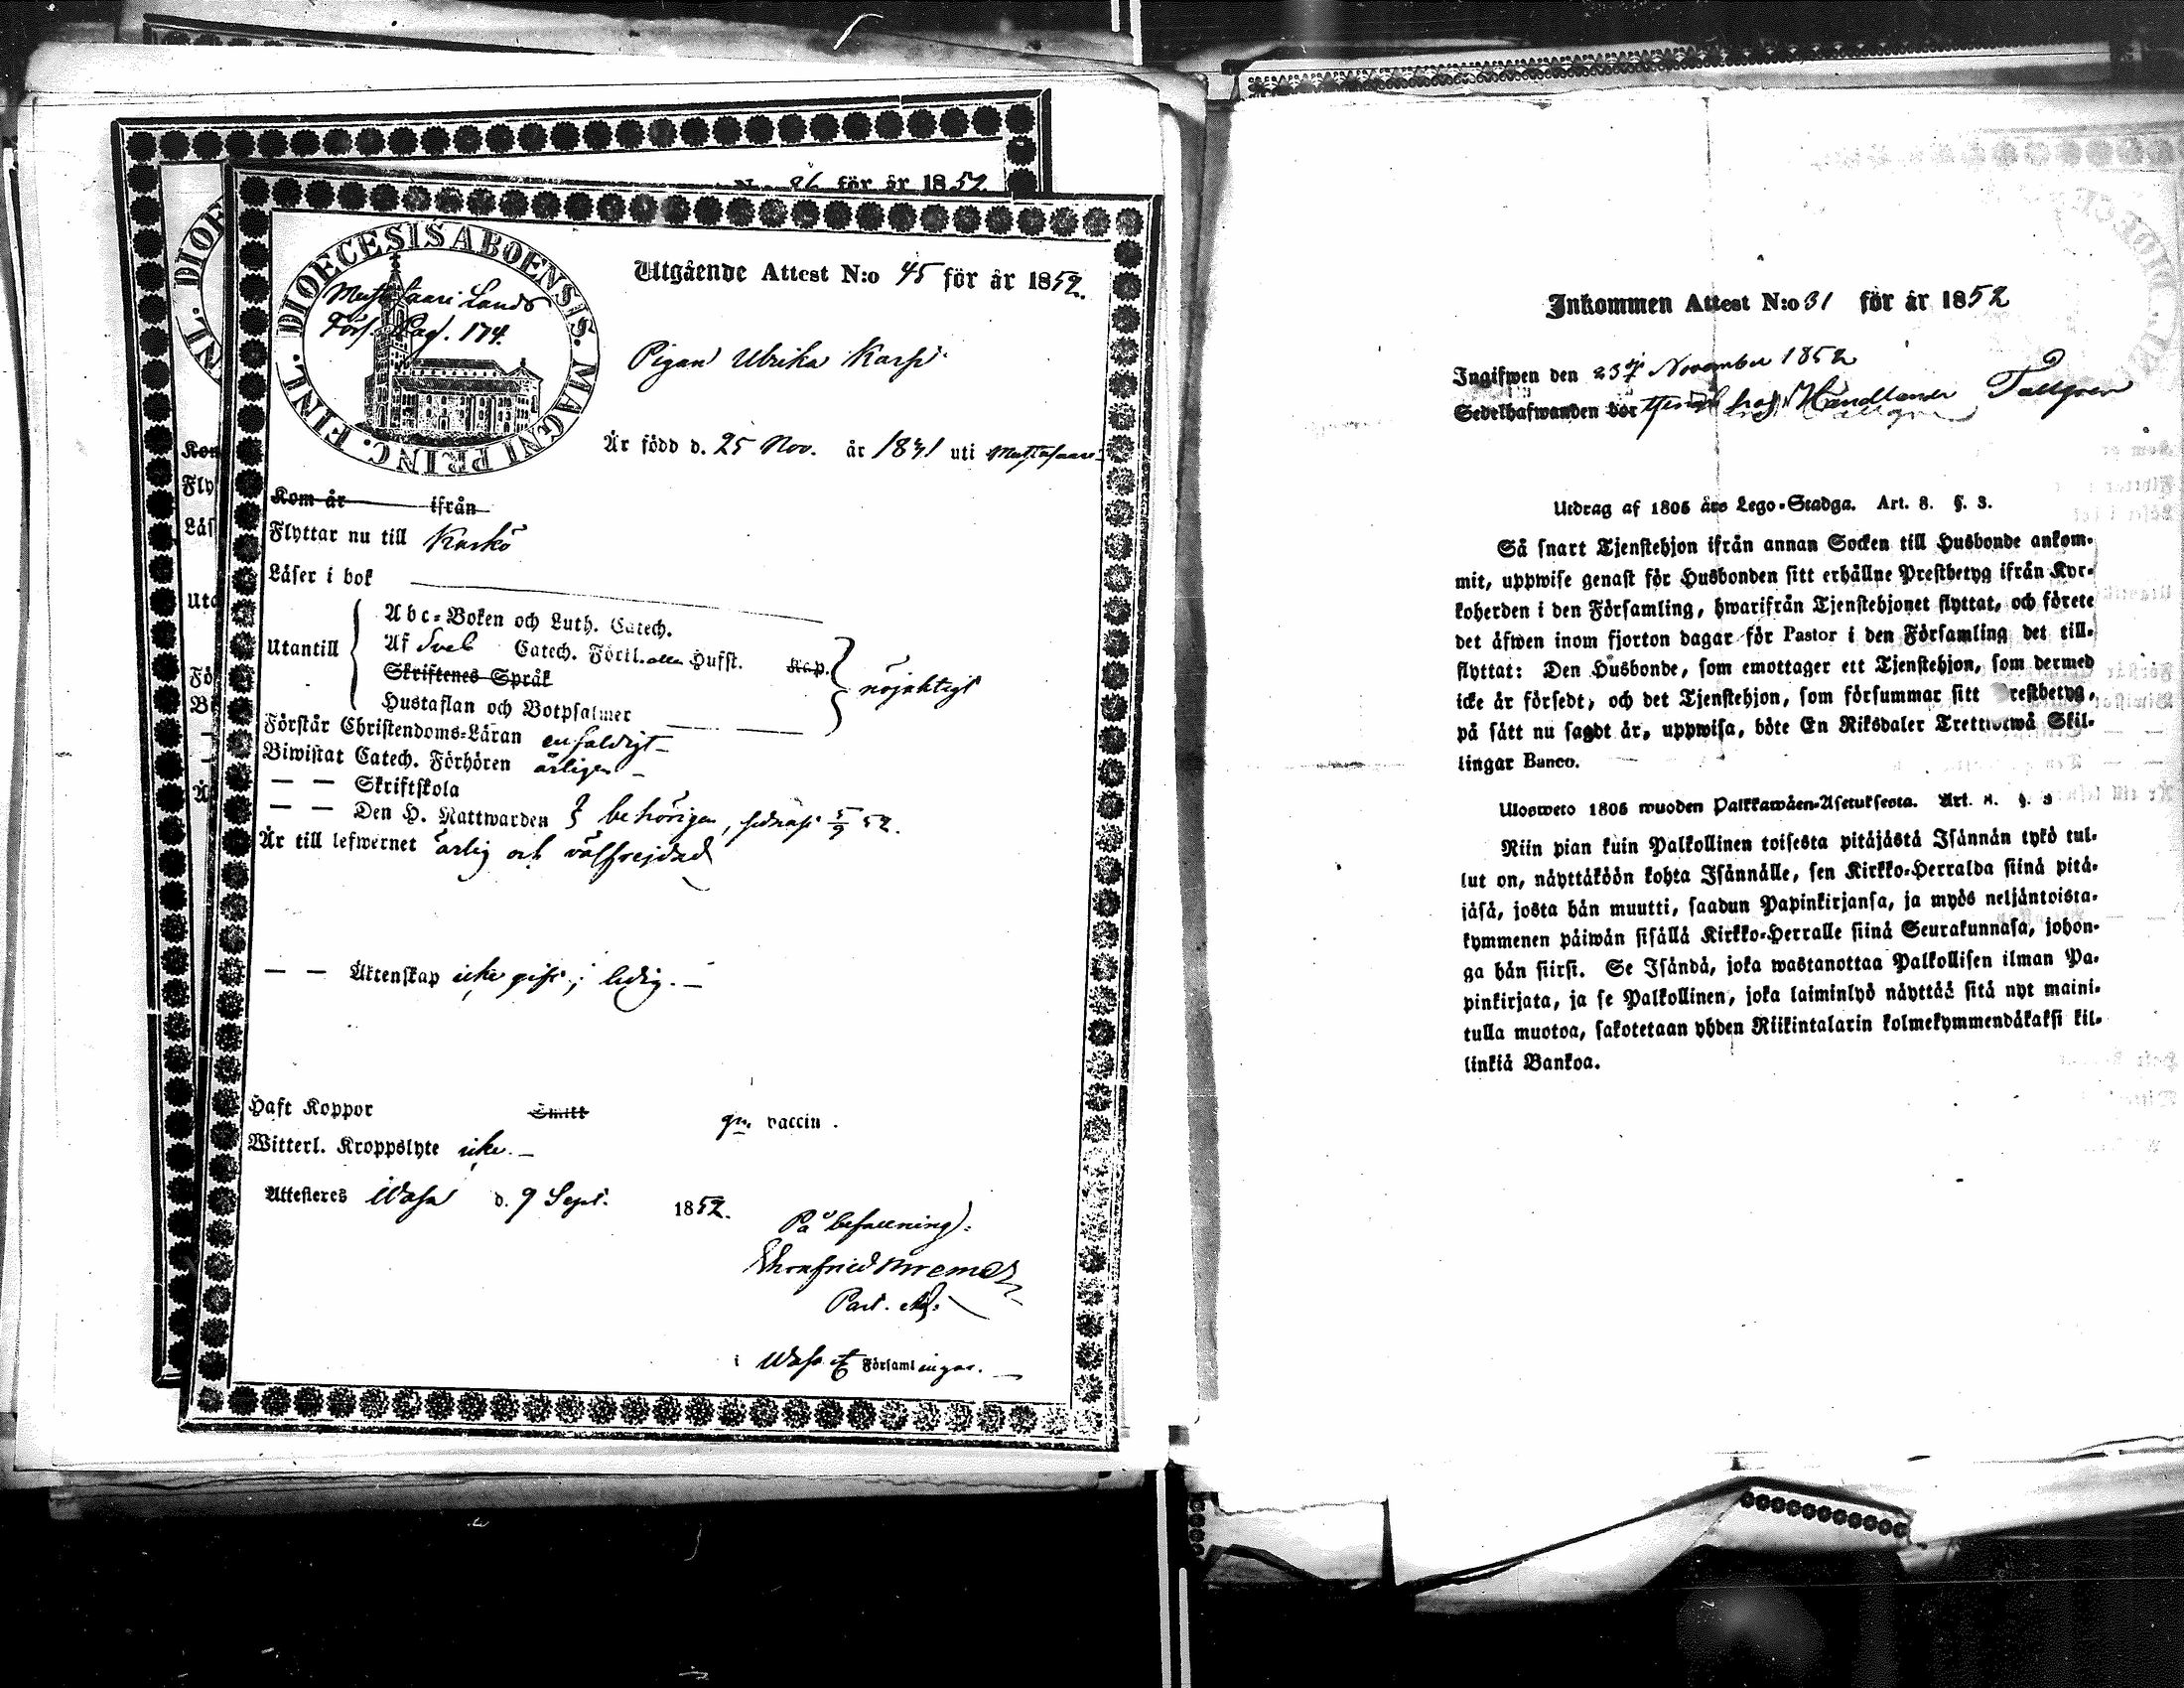 N:o 86 för år 1852.
DIOECESIS ABOENSIS. MAGNI PRINC. FINL.
Mustasaari Lands
Förs. Pag. 174.
Utgående Attest N:o 45 för år 1852.
Pigan Ulrika Karp
Är född d. 25 Nov. år 1831 uti Mustasaari
Kom år ifrån
Flyttar nu till Kaskö
Läser i bok
Utantill
Abc-Boken och Luth. Catech.
Af Sveb Catech. Förkl. allen Hufst. Kap.
Skriftenes Språk
Hustaflan och Botpsalmer
nöjaktigt
Förstår Christendoms-Läran enfaldigt
Biwistat Catech. Förhören årligen
— — Skriftskola
— — Den H. Nattwarden behörigen, sednast 5/9 52.
Är till lefwernet ärlig och välfrejdad
— — Äktenskap icke gift; ledig.
Haft Koppor Smitt gm vaccin.
Witterl. Kroppslyte icke.
Attesteres Wasa d. 9 Sept. 1852.
På befallning:
Past. Adj.
i Wasa Församlingar.
Kom
Fly
Läs
Uta
Fö
Bi
Inkommen Attest N:o 31 för år 1852
Ingifwen den 23 November 1852
Sedelhafwanden bor Handlanden Tallgren
Utdrag af 1805 års Lego-Stadga. Art. 8. §. 3.
Så snart Tjenstehjon ifrån annan Socken till Husbonde ankom-
mit, uppwise genast för Husbonden sitt erhållne Prestbetyg ifrån Kyr-
koherden i den Församling, hwarifrån Tjenstehjonet flyttat, och förete
det äfwen inom fjorton dagar för Pastor i den Församling det till-
flyttat: Den Husbonde, som emottager ett Tjenstehjon, som dermed
icke är försedt, och det Tjenstehjon, som försummar sitt Prestbetyg,
på sätt nu sagdt är, uppwisa, böte En Riksdaler Trettiotwå Skil-
lingar Banco.
Ulosweto 1805 wuoden Palkkawäen-Asetuksesta. Art. 8. §. 3
Niin pian kuin Palkollinen toisesta pitäjästä Isännän tykö tul-
lut on, näyttäköön kohta Isännälle, sen Kirkko-Herralda siinä pitä-
jäsä, josta hän muutti, saadun Papinkirjansa, ja myös neljäntoista-
kymmenen päiwän sisällä Kirkko-Herralle siinä Seurakunnasa, johon-
ga hän siirsi. Se Isändä, joka wastanottaa Palkollisen ilman Pa-
pinkirjata, ja se Palkollinen, joka laiminlyö näyttää sitä nyt maini-
tulla muotoa, sakotetaan yhden Riikintalarin kolmekymmendäkaksi kil-
linkiä Bankoa.